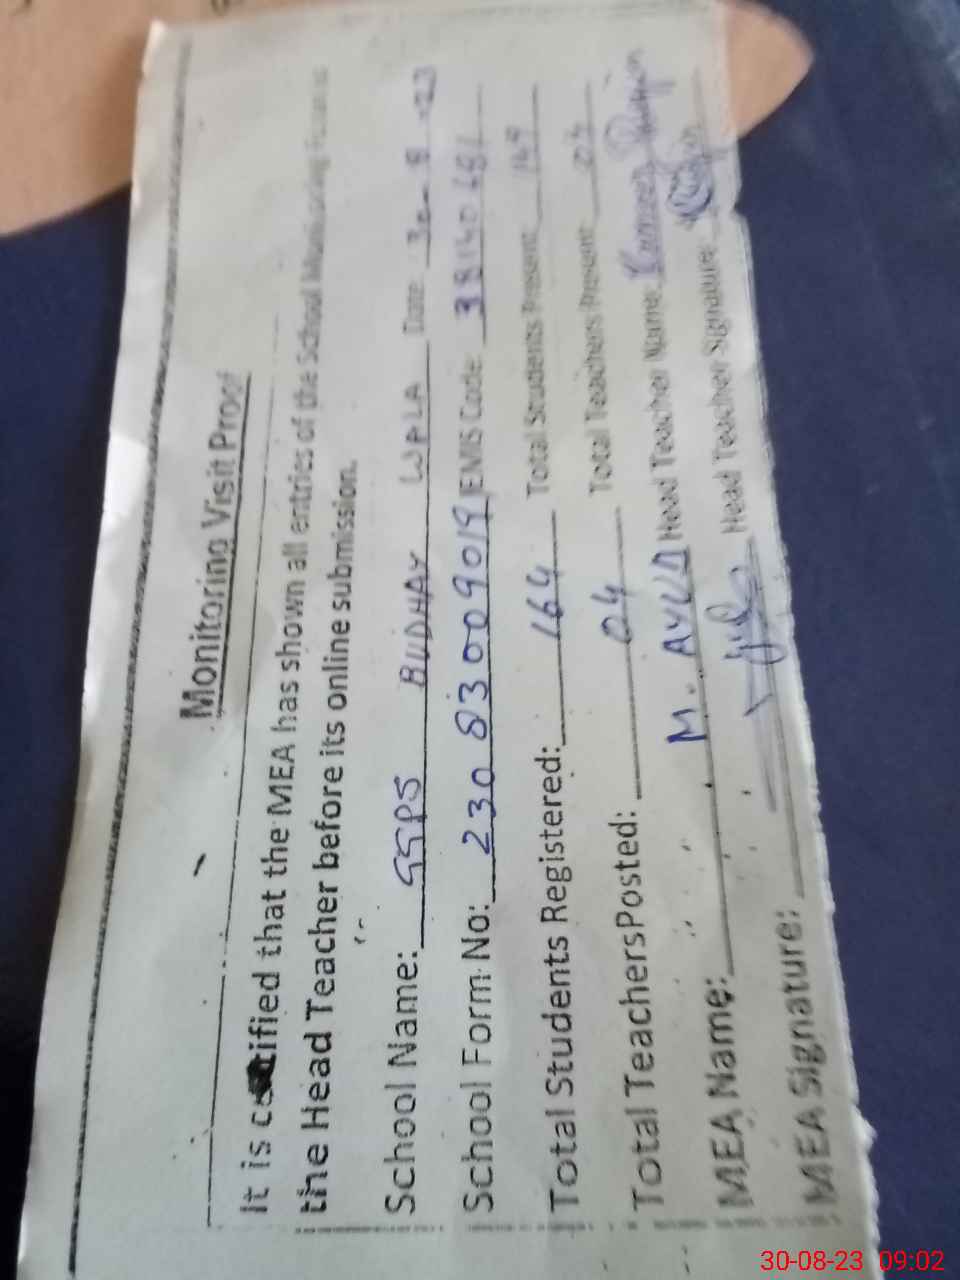 Monitoring Visit Proof
It is certified that the MEA has shown all entries of the School Monitoring Form to
the Head Teacher before its online submission.
School Name: GGPS BUDHAY WALA Date: 30-8-23
School Form No: 230 830090191 EMIS Code 38140481
Total Students Registered: 164 Total Students Present: 149
Total TeachersPosted: 04 Total Teachers Present: 04
MEA Name: M. AYUB Head Teacher Name:
MEA Signature: Head Teacher Signature:
30-08-23 09:02